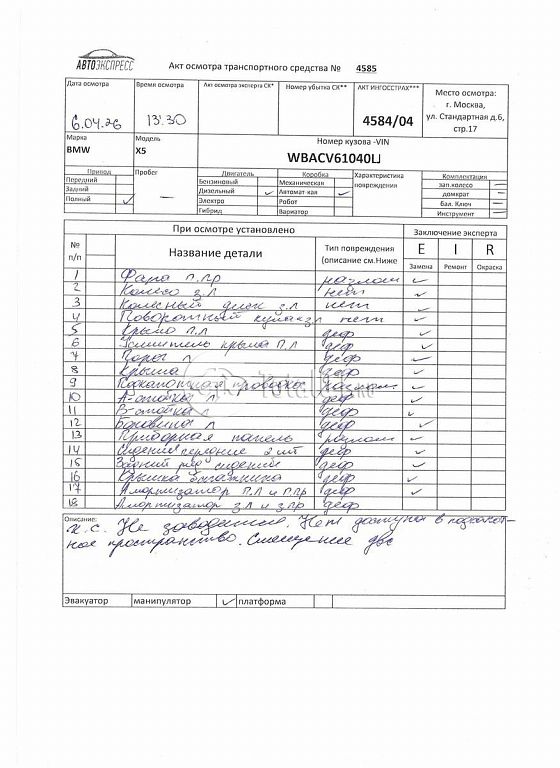 АВТОЭКСПРЕСС
Акт осмотра транспортного средства № 4585
Дата осмотра
6.04.26
Время осмотра
13:30
Акт осмотра эксперта СК*
Номер убытка СК**
АКТ ИНГОССТРАХ***
4584/04
Место осмотра:
г. Москва,
ул. Стандартная д.6,
стр.17
Марка
BMW
Модель
X5
Номер кузова -VIN
WBACV61040LJ
Привод
Передний
Задний
Полный ✓
Пробег
—
Двигатель
Бензиновый
Дизельный ✓
Электро
Гибрид
Коробка
Механическая
Автомат кая ✓
Робот
Вариатор
Характеристика
повреждения
Комплектация
зап.колесо —
домкрат
бал. Ключ —
Инструмент —
При осмотре установлено
Заключение эксперта
№
п/п
Название детали
Тип повреждения
(описание см.Ниже
E I R
Замена Ремонт Окраска
1 Фара п.пр разлом ✓
2 Колесо з.л нет ✓
3 Колесный диск з.л нет ✓
4 Поворотный кулак з.л нет ✓
5 Крыло п.л деф ✓
6 Усилитель крыла п.л деф ✓
7 Порог л деф ✓
8 Крыша деф ✓
9 Подкапотная проводка разлом ✓
10 А-стойка л деф ✓
11 В-стойка л деф ✓
12 Боковина л деф ✓
13 Приборная панель разлом ✓
14 Сидения передние 2 шт деф ✓
15 Задний ряд сидений деф ✓
16 Крышка багажника деф ✓
17 Амортизатор п.л и п.пр деф ✓
18 Амортизатор з.л и з.пр деф
Total
Описание:
Не заводится. Нет доступа в подкапот-
ное пространство. Смещение двс
Эвакуатор манипулятор ✓ платформа